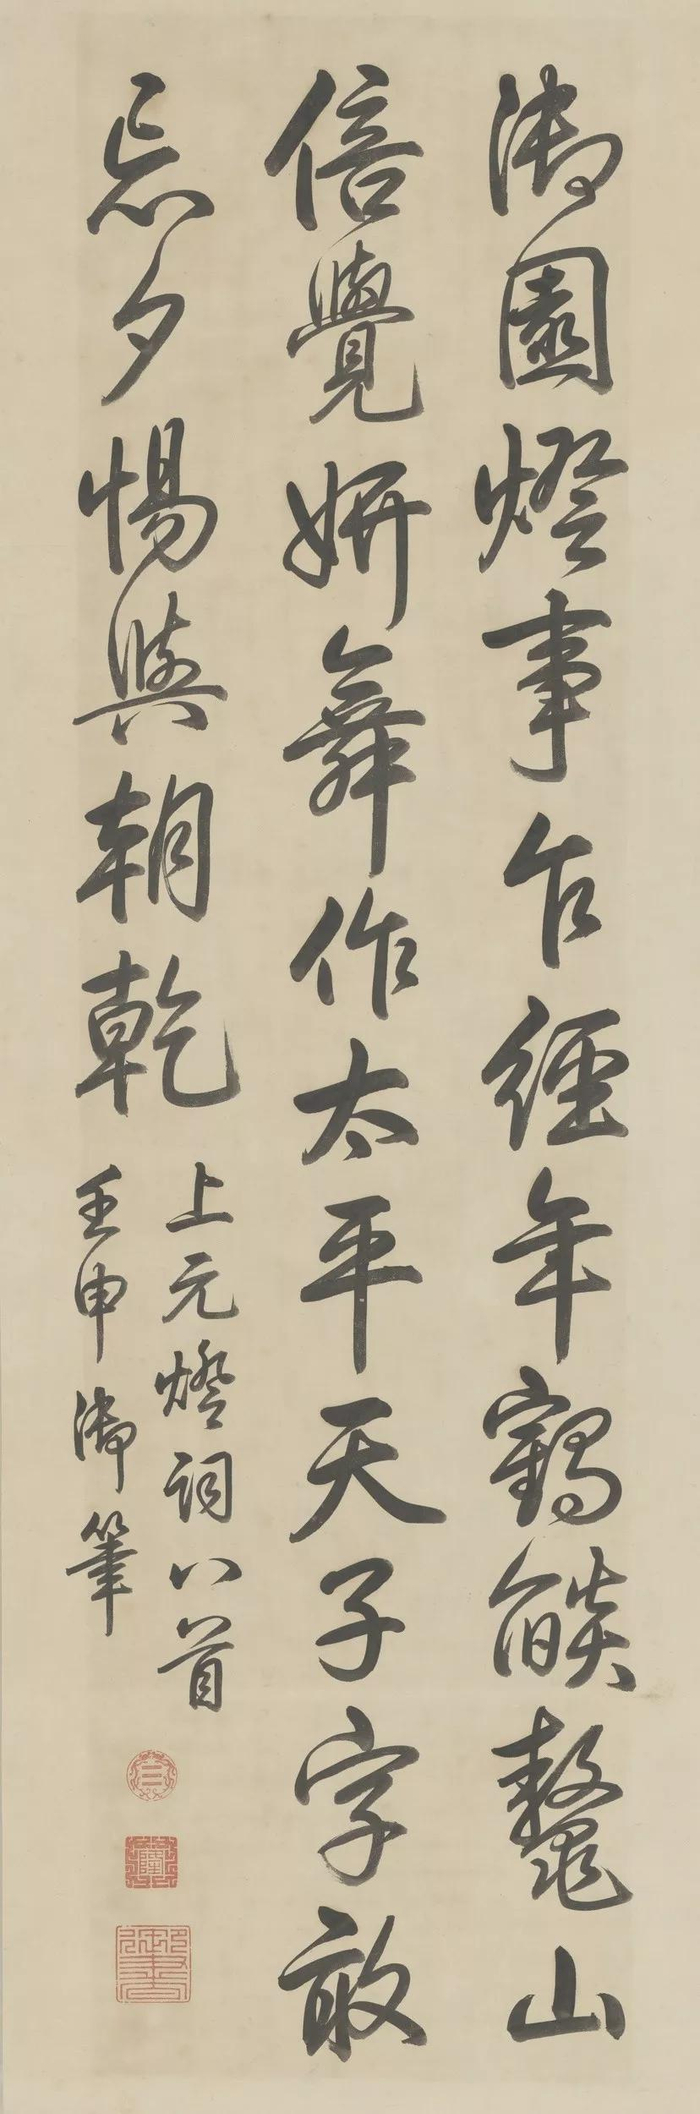 御園燈事乍經年鶴燄鼇山
倍覺妍舞作太平天子字敢
忘夕惕與朝乾
上元燈詞八首
壬申御筆
☰
乾隆
御書